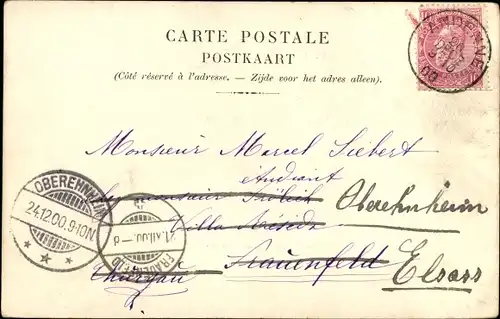 CARTE POSTALE
POSTKAART
(Côté réservé à l'adresse. — Zijde voor het adres alleen).
ANDENNE
Monsieur Marcel Siebert
Etudiant
Monsieur Frölich
Oberehnheim
Villa
Frauenfeld
Elsass
Thurgau
OBEREHNHEIM
24.12.00.9-10N.
FRAUENFELD